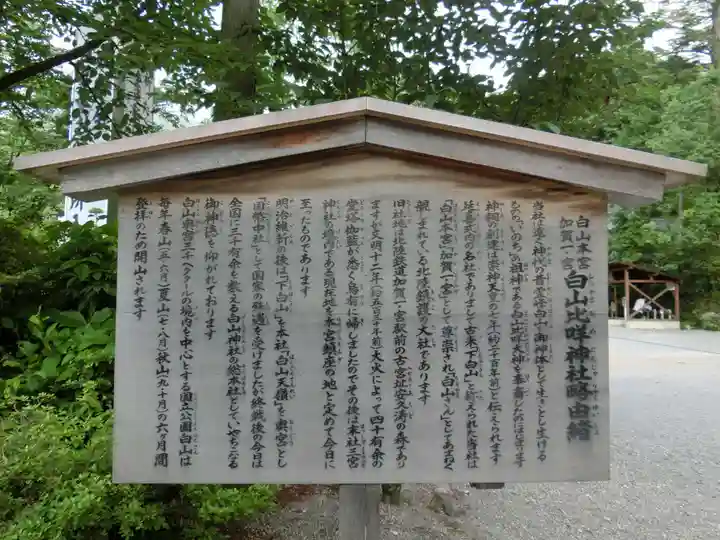 白山本宮
加賀一ノ宮
白山比咩神社略由緒
当社は遠く神代の昔から霊峰白山を御神体として生きとし生ける
もののいのちの祖神である白山比咩大神を奉斎したのにはじまります
神祠の創建は崇神天皇の七年(約二千百年前)と伝えられます
延喜式内の名社でありまして古来下白山と称えられた当社は
「白山本宮」「加賀一ノ宮」として尊崇され「白山さん」としてあまねく
親しまれている北陸鎮護の大社であります
旧社地は北陸鉄道加賀一の宮駅前の古宮址安久濤の森であり
ますが文明十二年(約五百三十年前)大火によって四十有余の
堂塔伽藍が悉く烏有に帰しましたのでその後は末社三宮
神社の境内である現在地を本宮鎮座の地と定めて今日に
至ったものであります
明治維新の後は「下白山」を本社「白山天嶺」を奥宮とし
「国幣中社」として国家の殊遇を受けましたが終戦後の今日は
全国に三千有余を数える白山神社の総本社としていやちこなる
御神徳を仰がれております
白山奥宮三千ヘクタールの境内を中心とする国立公園白山は
毎年春山(五・六月)夏山(七・八月)秋山(九・十月)の六ヶ月間
登拝のため開山されます